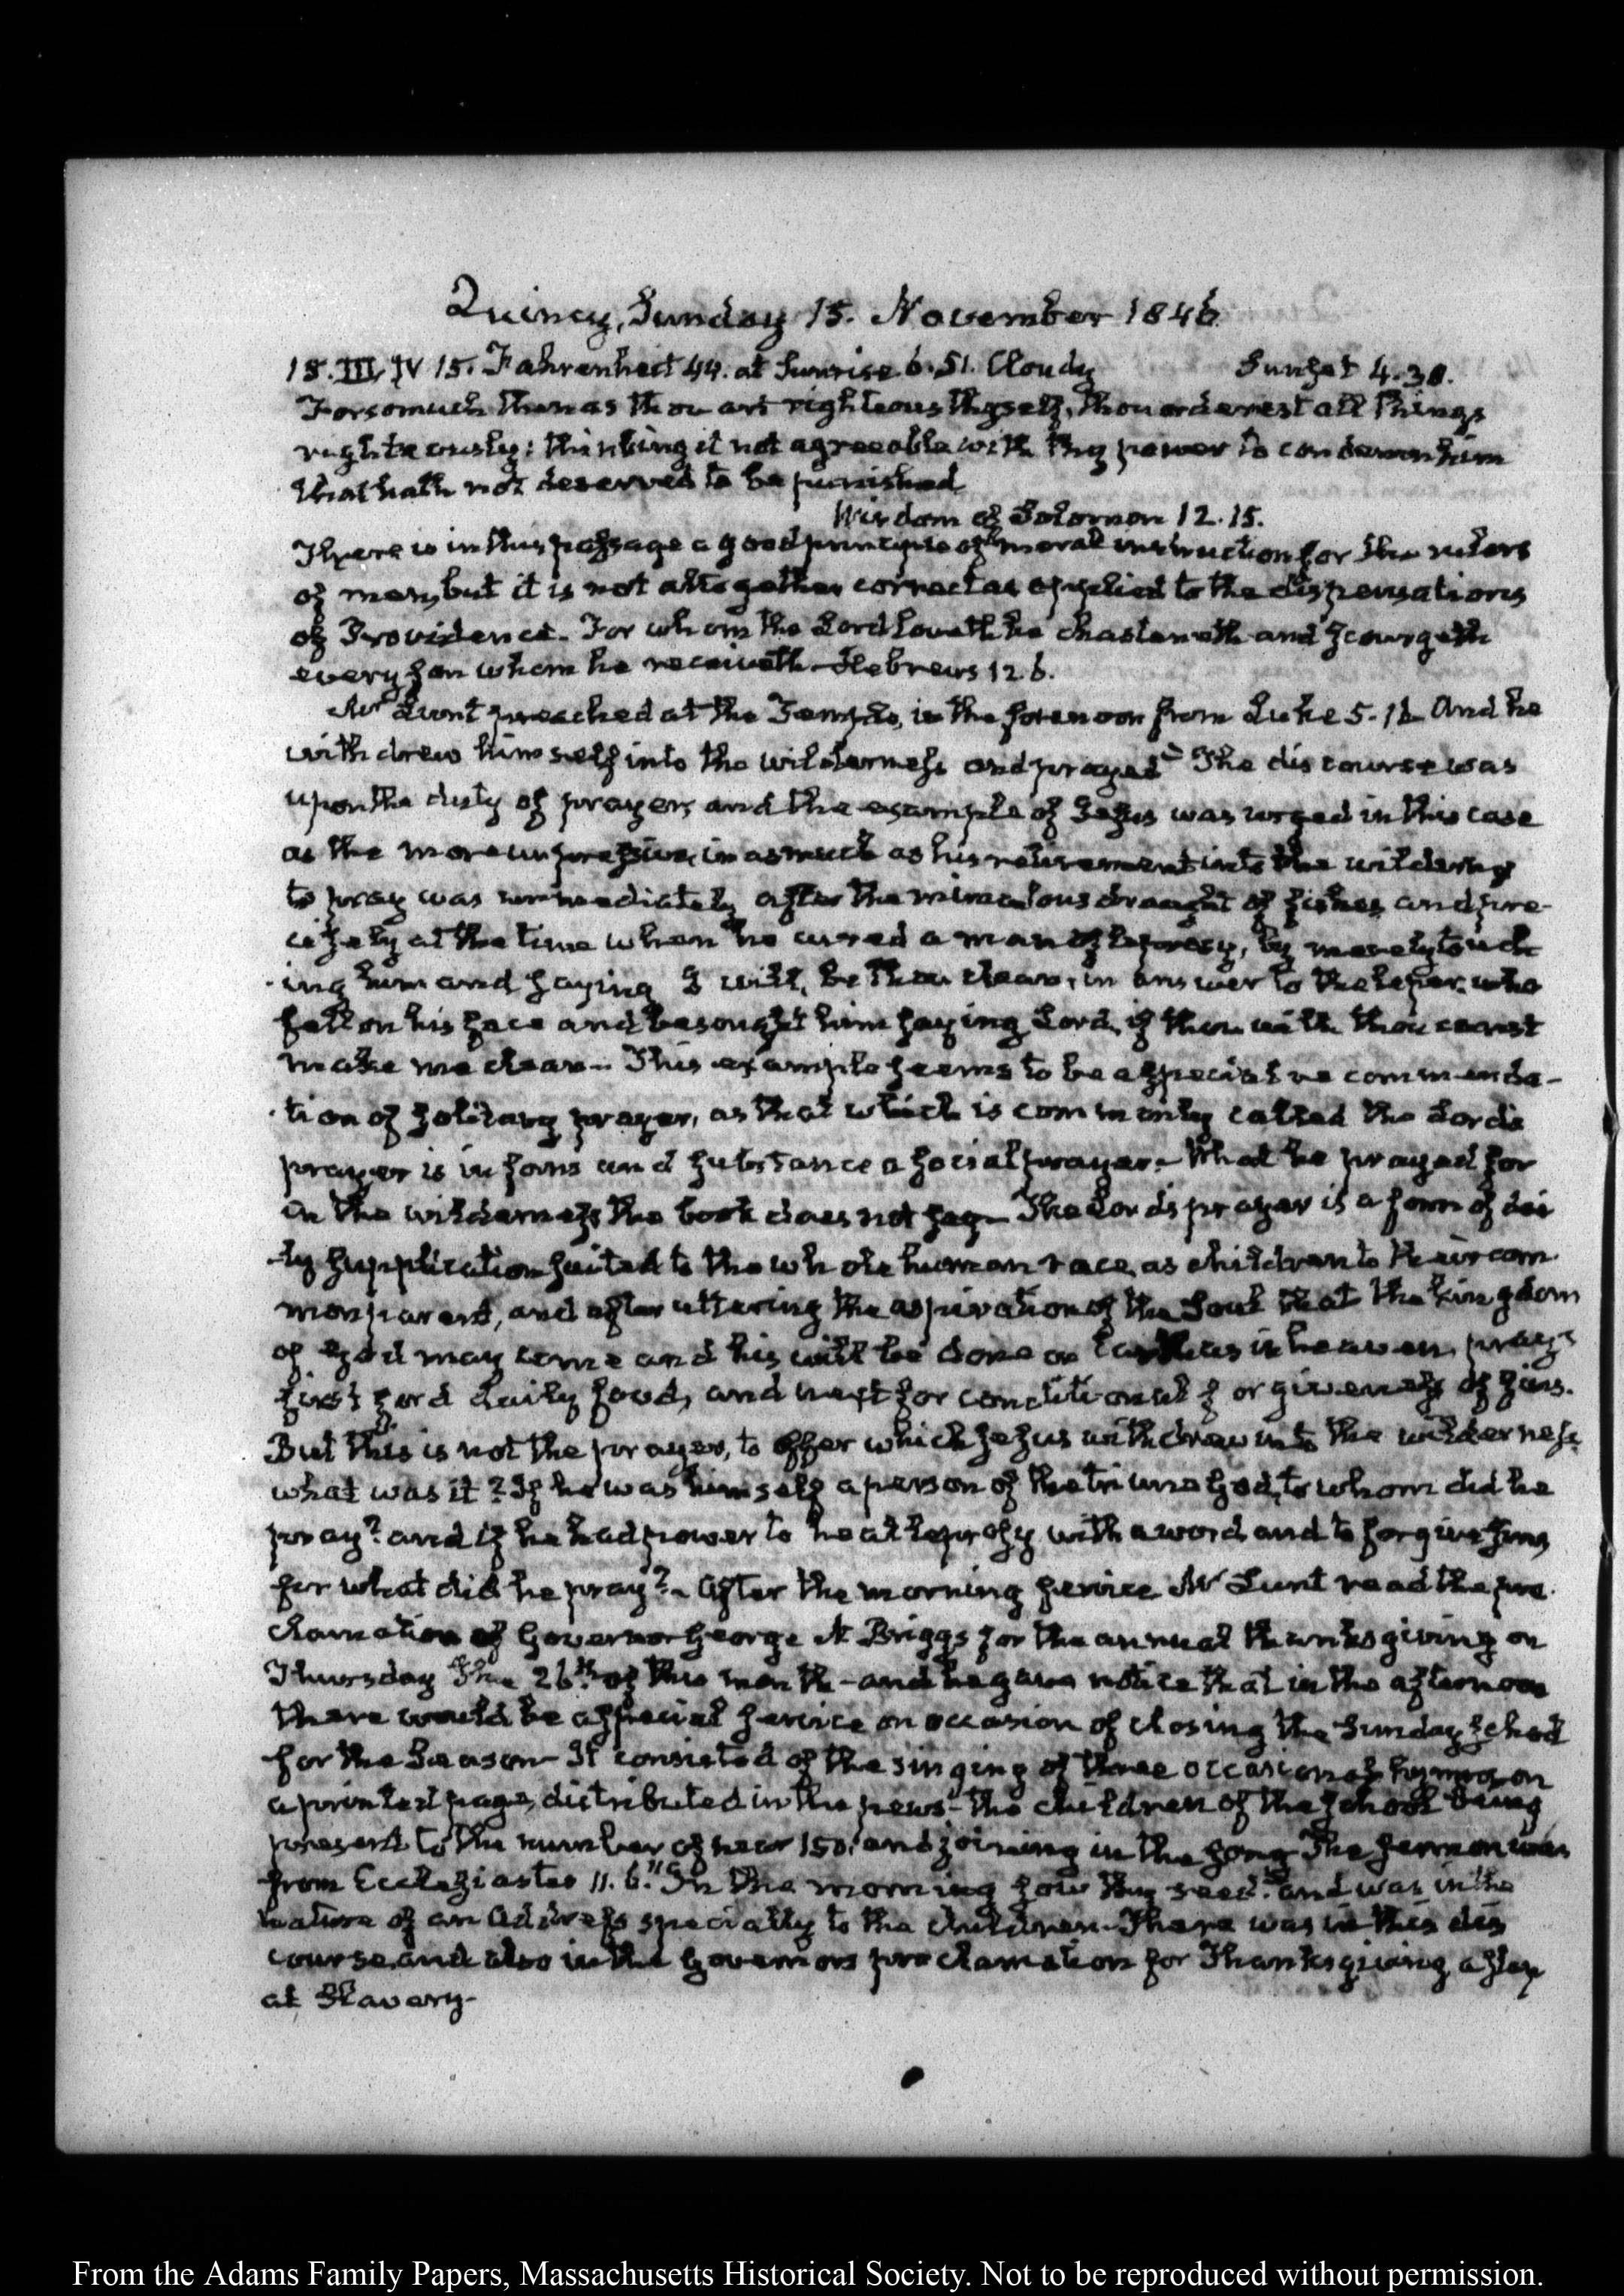 Quincy, Sunday 15. November 1846.
15. III. IV 15. Fahrenheit 44. at Sunrise 6.51. Cloudy Sunset 4.38.
Forsomuch then as thou art righteous thyself, thou orderest all things
righteously: thinking it not agreeable with thy power to condemn him
that hath not deserved to be punished
Wisdom of Solomon 12.15.
There is in this passage a good principle of moral instruction for the rulers
of men, but it is not altogether correct as applied to the dispensations
of Providence. For whom the Lord loveth he chasteneth and scourgeth
every son whom he receiveth. Hebrews 12.6.
Mr Lunt preached at the Temple, in the forenoon from Luke 5.16 And he
withdrew himself into the wilderness and prayed" The discourse was
upon the duty of prayer, and the example of Jesus was urged in this case
as the more impressive, in as much as his retirement into the wilderness
to pray was immediately after the miraculous draught of fishes and pre-
cisely at the time when he cured a man of leprosy, by merely touch
-ing him and saying I will, be thou clean, in answer to the leper, who
fell on his face and besought him saying Lord, if thou wilt thou canst
make me clean.. This example seems to be a special recommenda-
-tion of solitary prayer, as that which is commonly called the Lord's
prayer is in form and substance a social prayer. What he prayed for
in the wilderness the book does not say. The Lord's prayer is a form of dai
-ly supplication suited to the whole human race, as children to their com
mon parent, and after uttering the aspiration of the Soul that the kingdom
of God may come and his will be done on Earth as in heaven, prays
first for d daily food, and next for conditional forgiveness of sins.
But this is not the prayer, to offer which Jesus withdrew into the wilderness.
what was it? If he was himself a person of the triune God, to whom did he
pray? and if he had power to heal leprosy with a word and to forgive sins,
for what did he pray? After the morning service Mr Lunt read the pro
clamation of Governor George N Briggs for the annual thanksgiving on
Thursday the 26th. of this month - and he gave notice that in the afternoon
there would be a special service on occasion of closing the Sunday School
for the Season - It consisted of the singing of three occasional hymns on
a printed page, distributed in the pews - the children of the school being
present to the number of near 150. and joining in the song The sermon was
from Ecclesiastes 11.6. "In the morning sow thy seed." and was in the
nature of an address specially to the children. There was in this dis
course, and also in the Governors proclamation for Thanksgiving a slap
at Slavery-
From the Adams Family Papers, Massachusetts Historical Society. Not to be reproduced without permission.